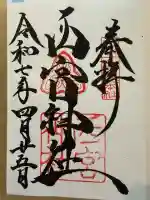 奉拝
二宮神社
令和七年 四月廿五日